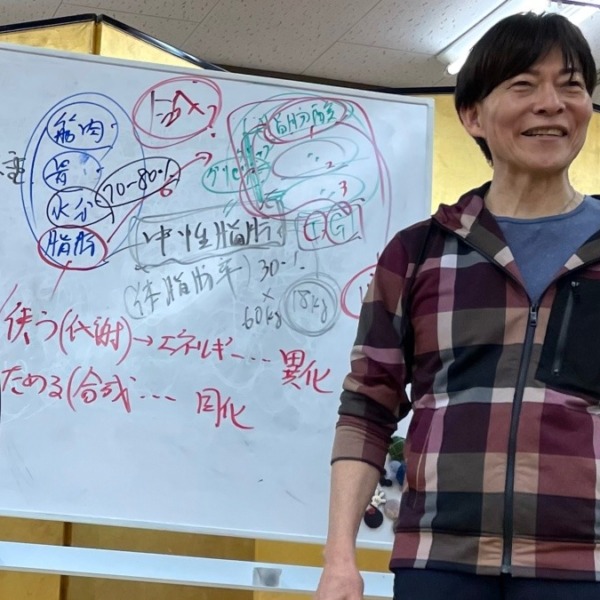 筋肉
骨
水分
脂肪
70-80%
脂肪酸
2
3
中性脂肪
TG
(体脂肪率) 30%
×
60kg
18kg
使う(代謝)→エネルギー… 異化
ためる(合成… 同化